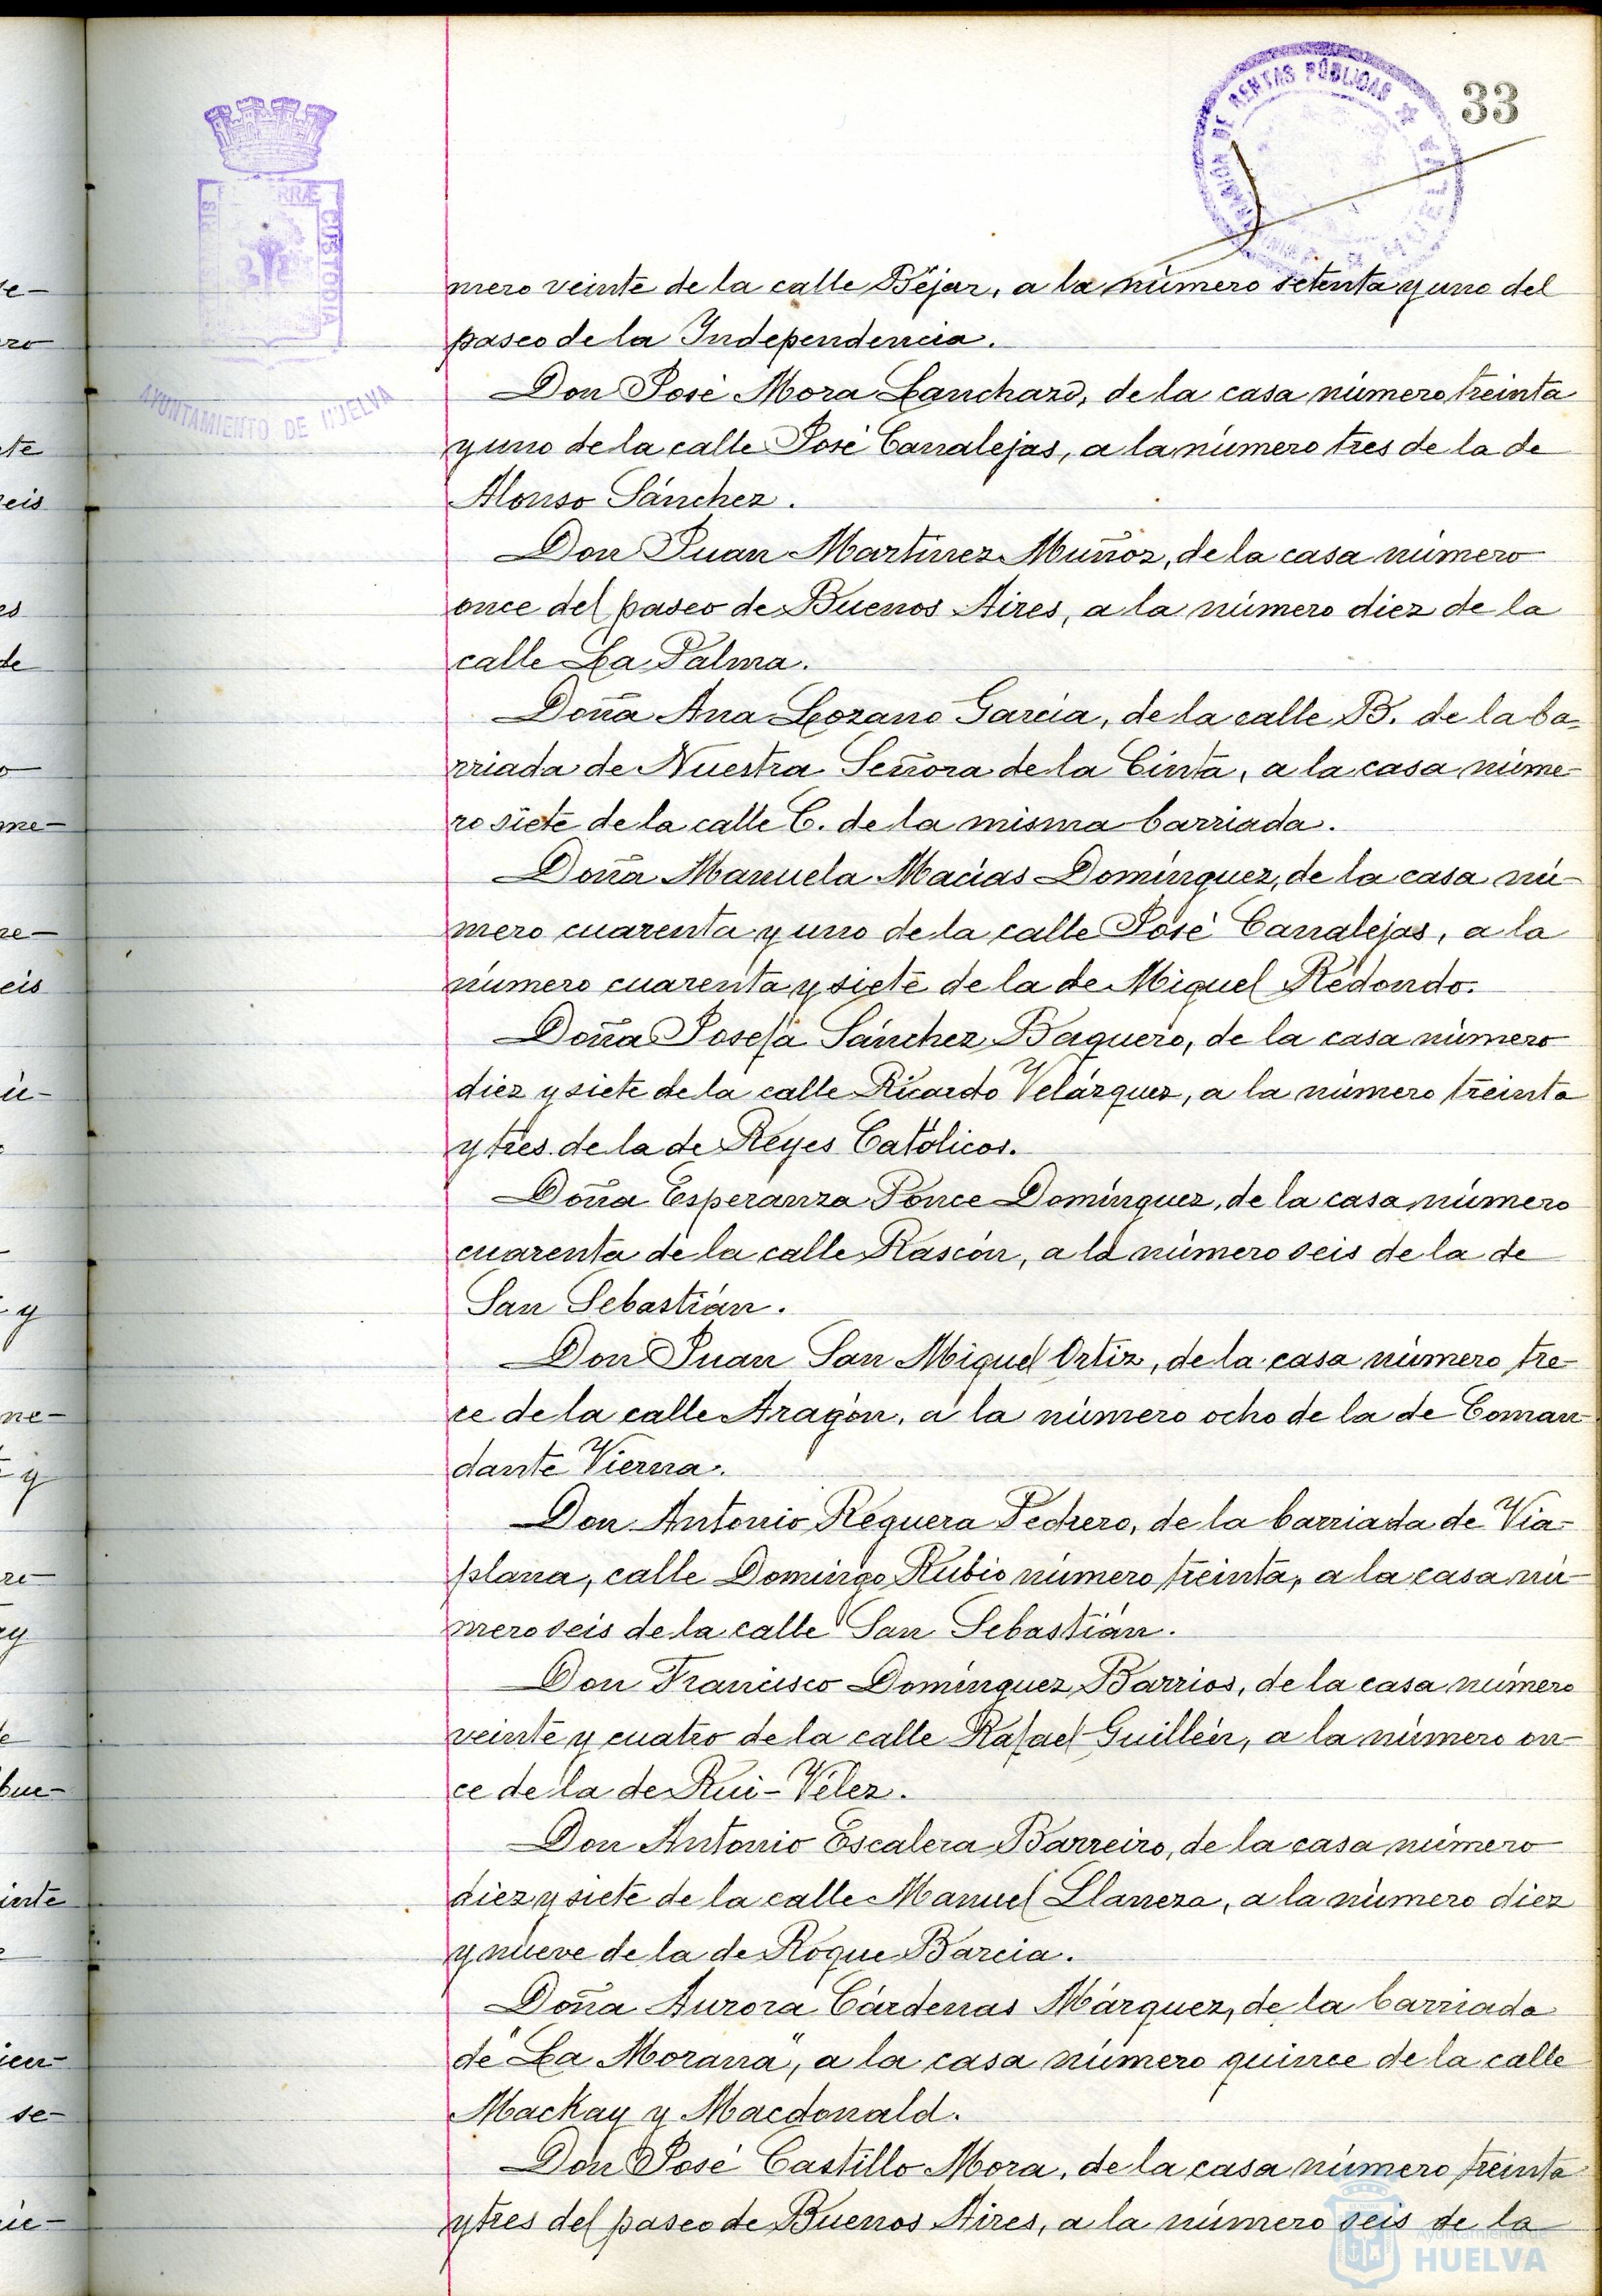 33
DE RENTAS PÚBLICAS
CUSTODIA
AYUNTAMIENTO DE HUELVA
mero veinte de la calle Béjar, a la número setenta y uno del
paseo de la Independencia.
Don José Mora Lanchazo, de la casa número treinta
y uno de la calle José Canalejas, a la número tres de la de
Alonso Sánchez.
Don Juan Martínez Muñoz, de la casa número
once del paseo de Buenos Aires, a la número diez de la
calle La Palma.
Doña Ana Lozano García, de la calle B. de la ba-
rriada de Nuestra Señora de la Cinta, a la casa núme-
ro siete de la calle C. de la misma barriada.
Doña Manuela Macías Domínguez, de la casa nú-
mero cuarenta y uno de la calle José Canalejas, a la
número cuarenta y siete de la de Miguel Redondo.
Doña Josefa Sánchez Baquero, de la casa número
diez y siete de la calle Ricardo Velázquez, a la número treinta
y tres de la de Reyes Católicos.
Doña Esperanza Ponce Domínguez, de la casa número
cuarenta de la calle Rascón, a la número seis de la de
San Sebastián.
Don Juan San Miguel Ortiz, de la casa número tre-
ce de la calle Aragón, a la número ocho de la de Coman-
dante Vierna.
Don Antonio Reguera Pedrero, de la barriada de Via-
plana, calle Domingo Rubio número treinta, a la casa nú-
mero seis de la calle San Sebastián.
Don Francisco Domínguez Barrios, de la casa número
veinte y cuatro de la calle Rafael Guillén, a la número on-
ce de la de Rui-Vélez.
Don Antonio Escalera Barreiro, de la casa número
diez y siete de la calle Manuel Llaneza, a la número diez
y nueve de la de Roque Barcia.
Doña Aurora Cárdenas Márquez, de la barriada
de "La Morana", a la casa número quince de la calle
Mackay y Macdonald.
Don José Castillo Mora, de la casa número treinta
y tres del paseo de Buenos Aires, a la número seis de la
Ayuntamiento de
HUELVA